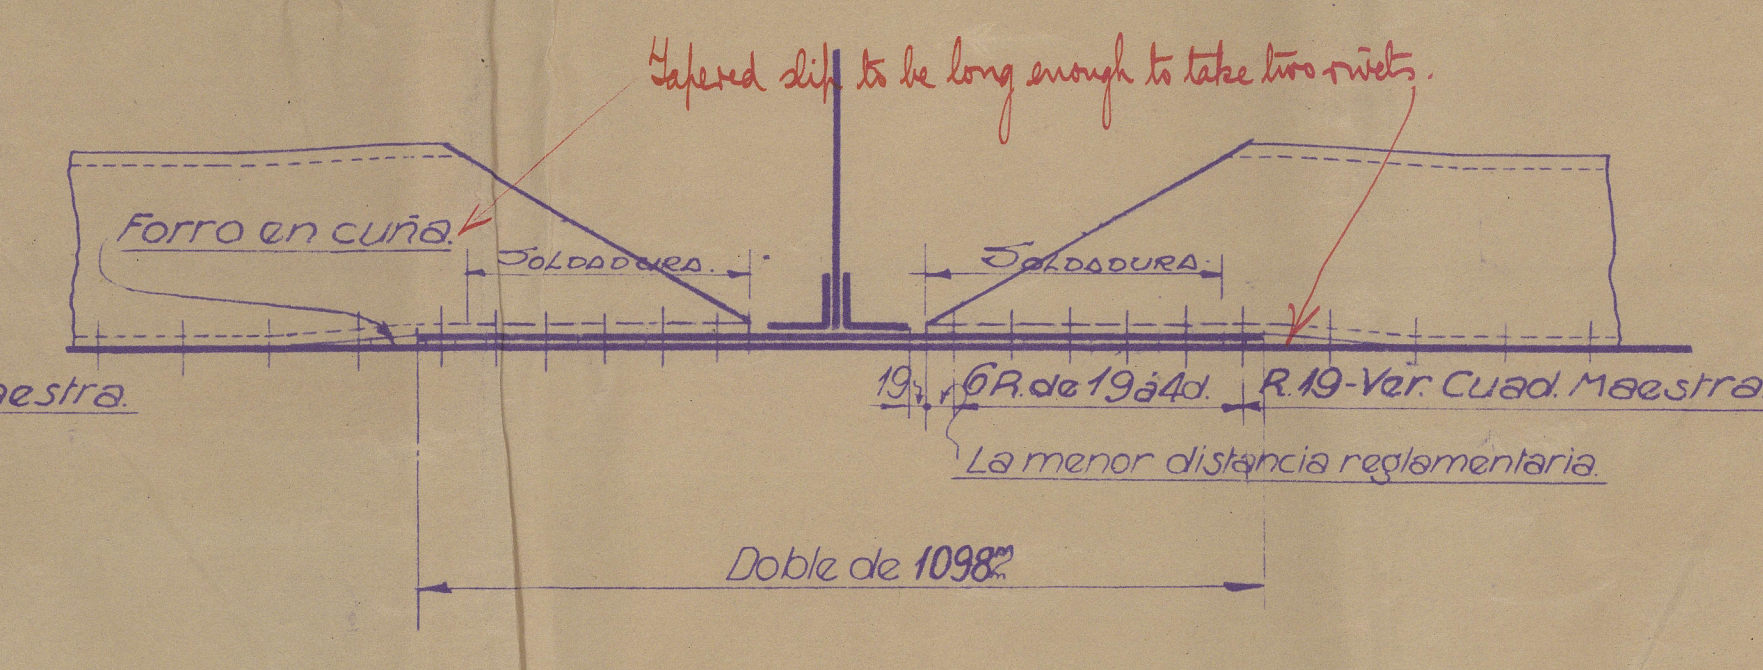 Tapered slip to be long enough to take two rivets.
Forro en cuña.
SOLDADURA. SOLDADURA.
aestra. 19 6 R. de 19 á 4d. R.19-Ver. Cuad. Maestra
La menor distancia reglamentaria.
Doble de 1098 m/m